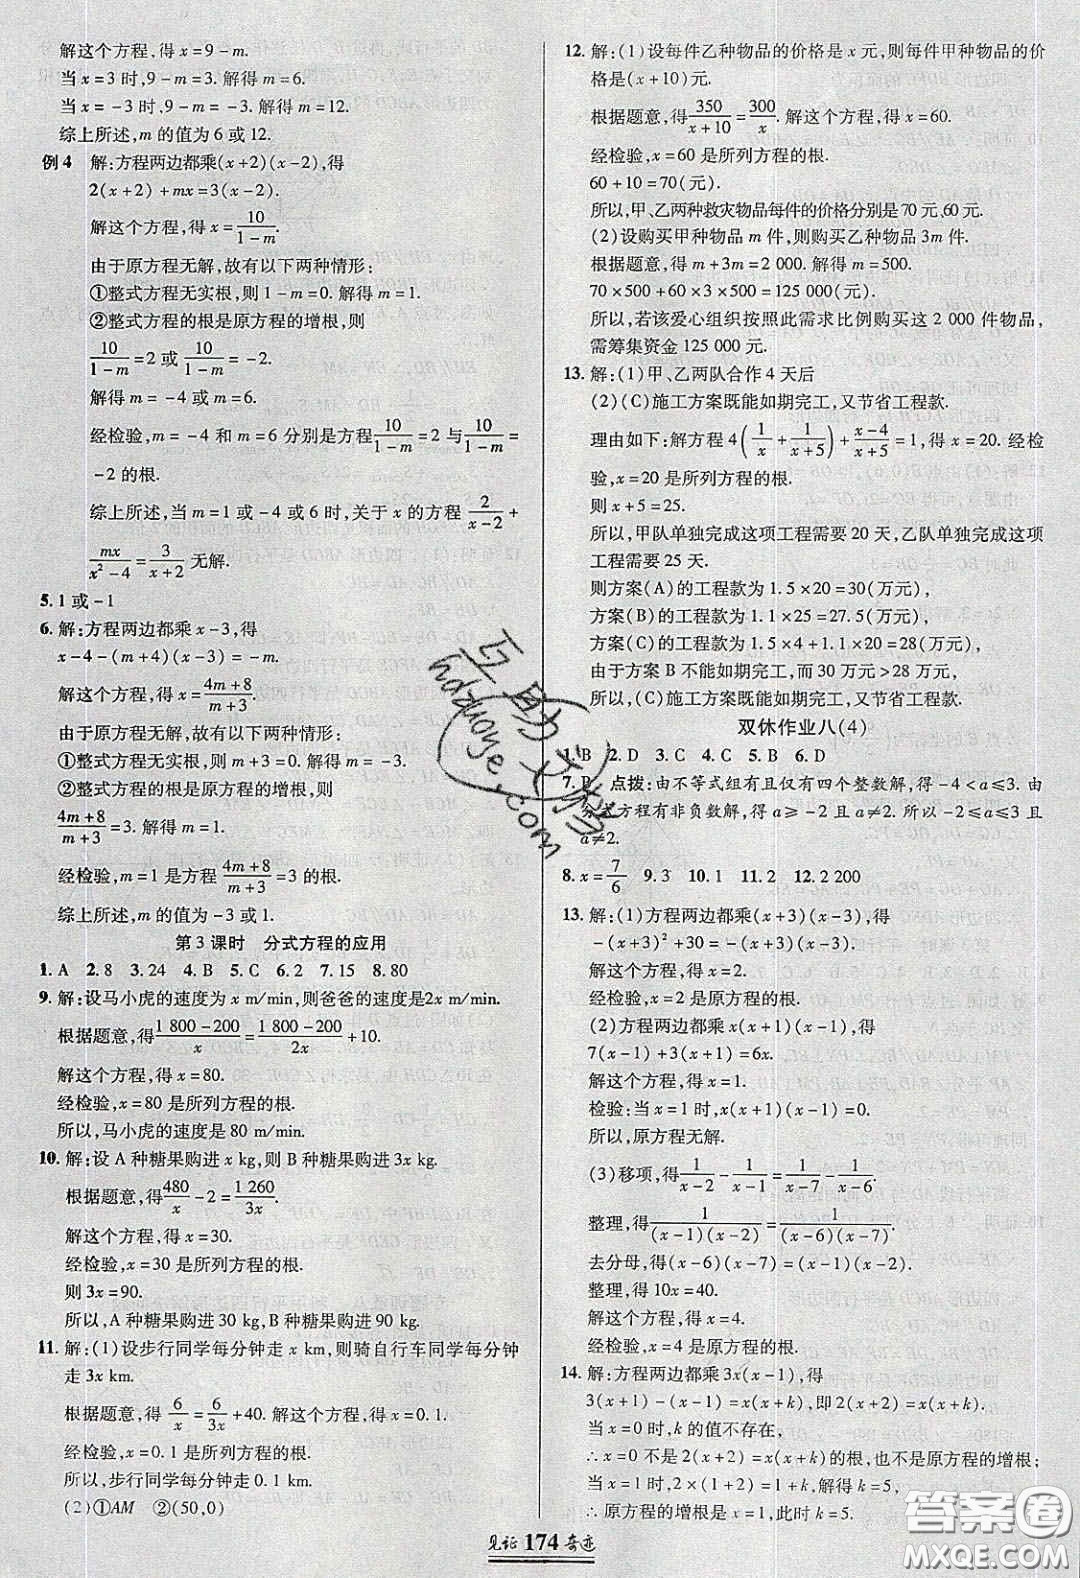 解这个方程,得 x=9-m.
当 x=3 时,9-m=3. 解得 m=6.
当 x=-3 时,9-m=-3. 解得 m=12.
综上所述,m 的值为 6 或 12.
例 4 解:方程两边都乘(x+2)(x-2),得
2(x+2)+mx=3(x-2).
解这个方程,得 x=10/(1-m).
由于原方程无解,故有以下两种情形:
①整式方程无实根,则 1-m=0. 解得 m=1.
②整式方程的根是原方程的增根,则
10/(1-m)=2 或 10/(1-m)=-2.
解得 m=-4 或 m=6.
经检验,m=-4 和 m=6 分别是方程10/(1-m)=2 与10/(1-m)=
-2 的根.
综上所述,当 m=1 或-4 或 6 时,关于 x 的方程 2/(x-2)+
mx/(x²-4)=3/(x+2) 无解.
5. 1 或-1
6. 解:方程两边都乘 x-3,得
x-4-(m+4)(x-3)=-m.
解这个方程,得 x=(4m+8)/(m+3).
由于原方程无解,故有以下两种情形:
①整式方程无实根,则 m+3=0. 解得 m=-3.
②整式方程的根是原方程的增根,则
(4m+8)/(m+3)=3. 解得 m=1.
经检验,m=1 是方程(4m+8)/(m+3)=3 的根.
综上所述,m 的值为-3 或 1.
第 3 课时 分式方程的应用
1. A 2. 8 3. 24 4. B 5. C 6. 2 7. 15 8. 80
9. 解:设马小虎的速度为 x m/min,则爸爸的速度是2x m/min.
根据题意,得(1 800-200)/x=(1 800-200)/2x+10.
解这个方程,得 x=80.
经检验,x=80 是所列方程的根.
所以,马小虎的速度是 80 m/min.
10. 解:设 A 种糖果购进 x kg,则 B 种糖果购进 3x kg.
根据题意,得480/x-2=1 260/3x.
解这个方程,得 x=30.
经检验,x=30 是所列方程的根.
则 3x=90.
所以,A 种糖果购进 30 kg,B 种糖果购进 90 kg.
11. 解:(1)设步行同学每分钟走 x km,则骑自行车同学每分钟
走 3x km.
根据题意,得 6/x=6/3x+40. 解这个方程,得 x=0.1.
经检验,x=0.1 是所列方程的根.
所以,步行同学每分钟走 0.1 km.
(2)①AM ②(50,0)
12. 解:(1)设每件乙种物品的价格是 x 元,则每件甲种物品的价
格是(x+10)元.
根据题意,得350/(x+10)=300/x. 解这个方程,得 x=60.
经检验,x=60 是所列方程的根.
60+10=70(元).
所以,甲、乙两种救灾物品每件的价格分别是 70 元、60 元.
(2)设购买甲种物品 m 件,则购买乙种物品 3m 件.
根据题意,得 m+3m=2 000. 解得 m=500.
70×500+60×3×500=125 000(元).
所以,若该爱心组织按照此需求比例购买这 2 000 件物品,
需筹集资金 125 000 元.
13. 解:(1)甲、乙两队合作 4 天后
(2)(C)施工方案既能如期完工,又节省工程款.
理由如下:解方程 4(1/x+1/(x+5))+(x-4)/(x+5)=1,得 x=20. 经检
验,x=20 是所列方程的根.
则 x+5=25.
所以,甲队单独完成这项工程需要 20 天,乙队单独完成这项
工程需要 25 天.
则方案(A)的工程款为 1.5×20=30(万元),
方案(B)的工程款为 1.1×25=27.5(万元),
方案(C)的工程款为 1.5×4+1.1×20=28(万元),
由于方案 B 不能如期完工,而 30 万元>28 万元,
所以,(C)施工方案既能如期完工,又节省工程款.
双休作业八(4)
1. B 2. D 3. C 4. C 5. B 6. D
7. B 点拨:由不等式组有且仅有四个整数解,得-4<a≤3. 由
分式方程有非负数解,得 a≥-2 且 a≠2. 所以-2≤a≤3 且
a≠2.
8. x=7/6 9. 3 10. 1 11. 2 12. 2 200
13. 解:(1)方程两边都乘(x+3)(x-3),得
-(x+3)²+30=(3-x)(x+3).
解这个方程,得 x=2.
经检验,x=2 是原方程的根.
(2)方程两边都乘 x(x+1)(x-1),得
7(x-1)+3(x+1)=6x.
解这个方程,得 x=1.
检验:当 x=1 时,x(x+1)(x-1)=0.
所以,原方程无解.
(3)移项,得 1/(x-2)-1/(x-1)=1/(x-7)-1/(x-6).
整理,得1/((x-1)(x-2))=1/((x-6)(x-7)).
去分母,得(x-6)(x-7)=(x-1)(x-2).
整理,得 10x=40.
解这个方程,得 x=4.
经检验,x=4 是原方程的根.
14. 解:方程两边都乘 3x(x-1),得
3(x+k)-(x-1)=x(x+k),即2(x+2)=x(x+k).
当 x=0 时,k 的值不存在,
∴x=0 也不是 2(x+2)=x(x+k)是原方程的增根;
当 x=1 时,2×(1+2)=1+k,解得 k=5.
∴原方程的增根是 x=1,此时 k=5.
见证 174 奇迹
互助文档
hdzuoye.com
答案圈
MXQE.COM